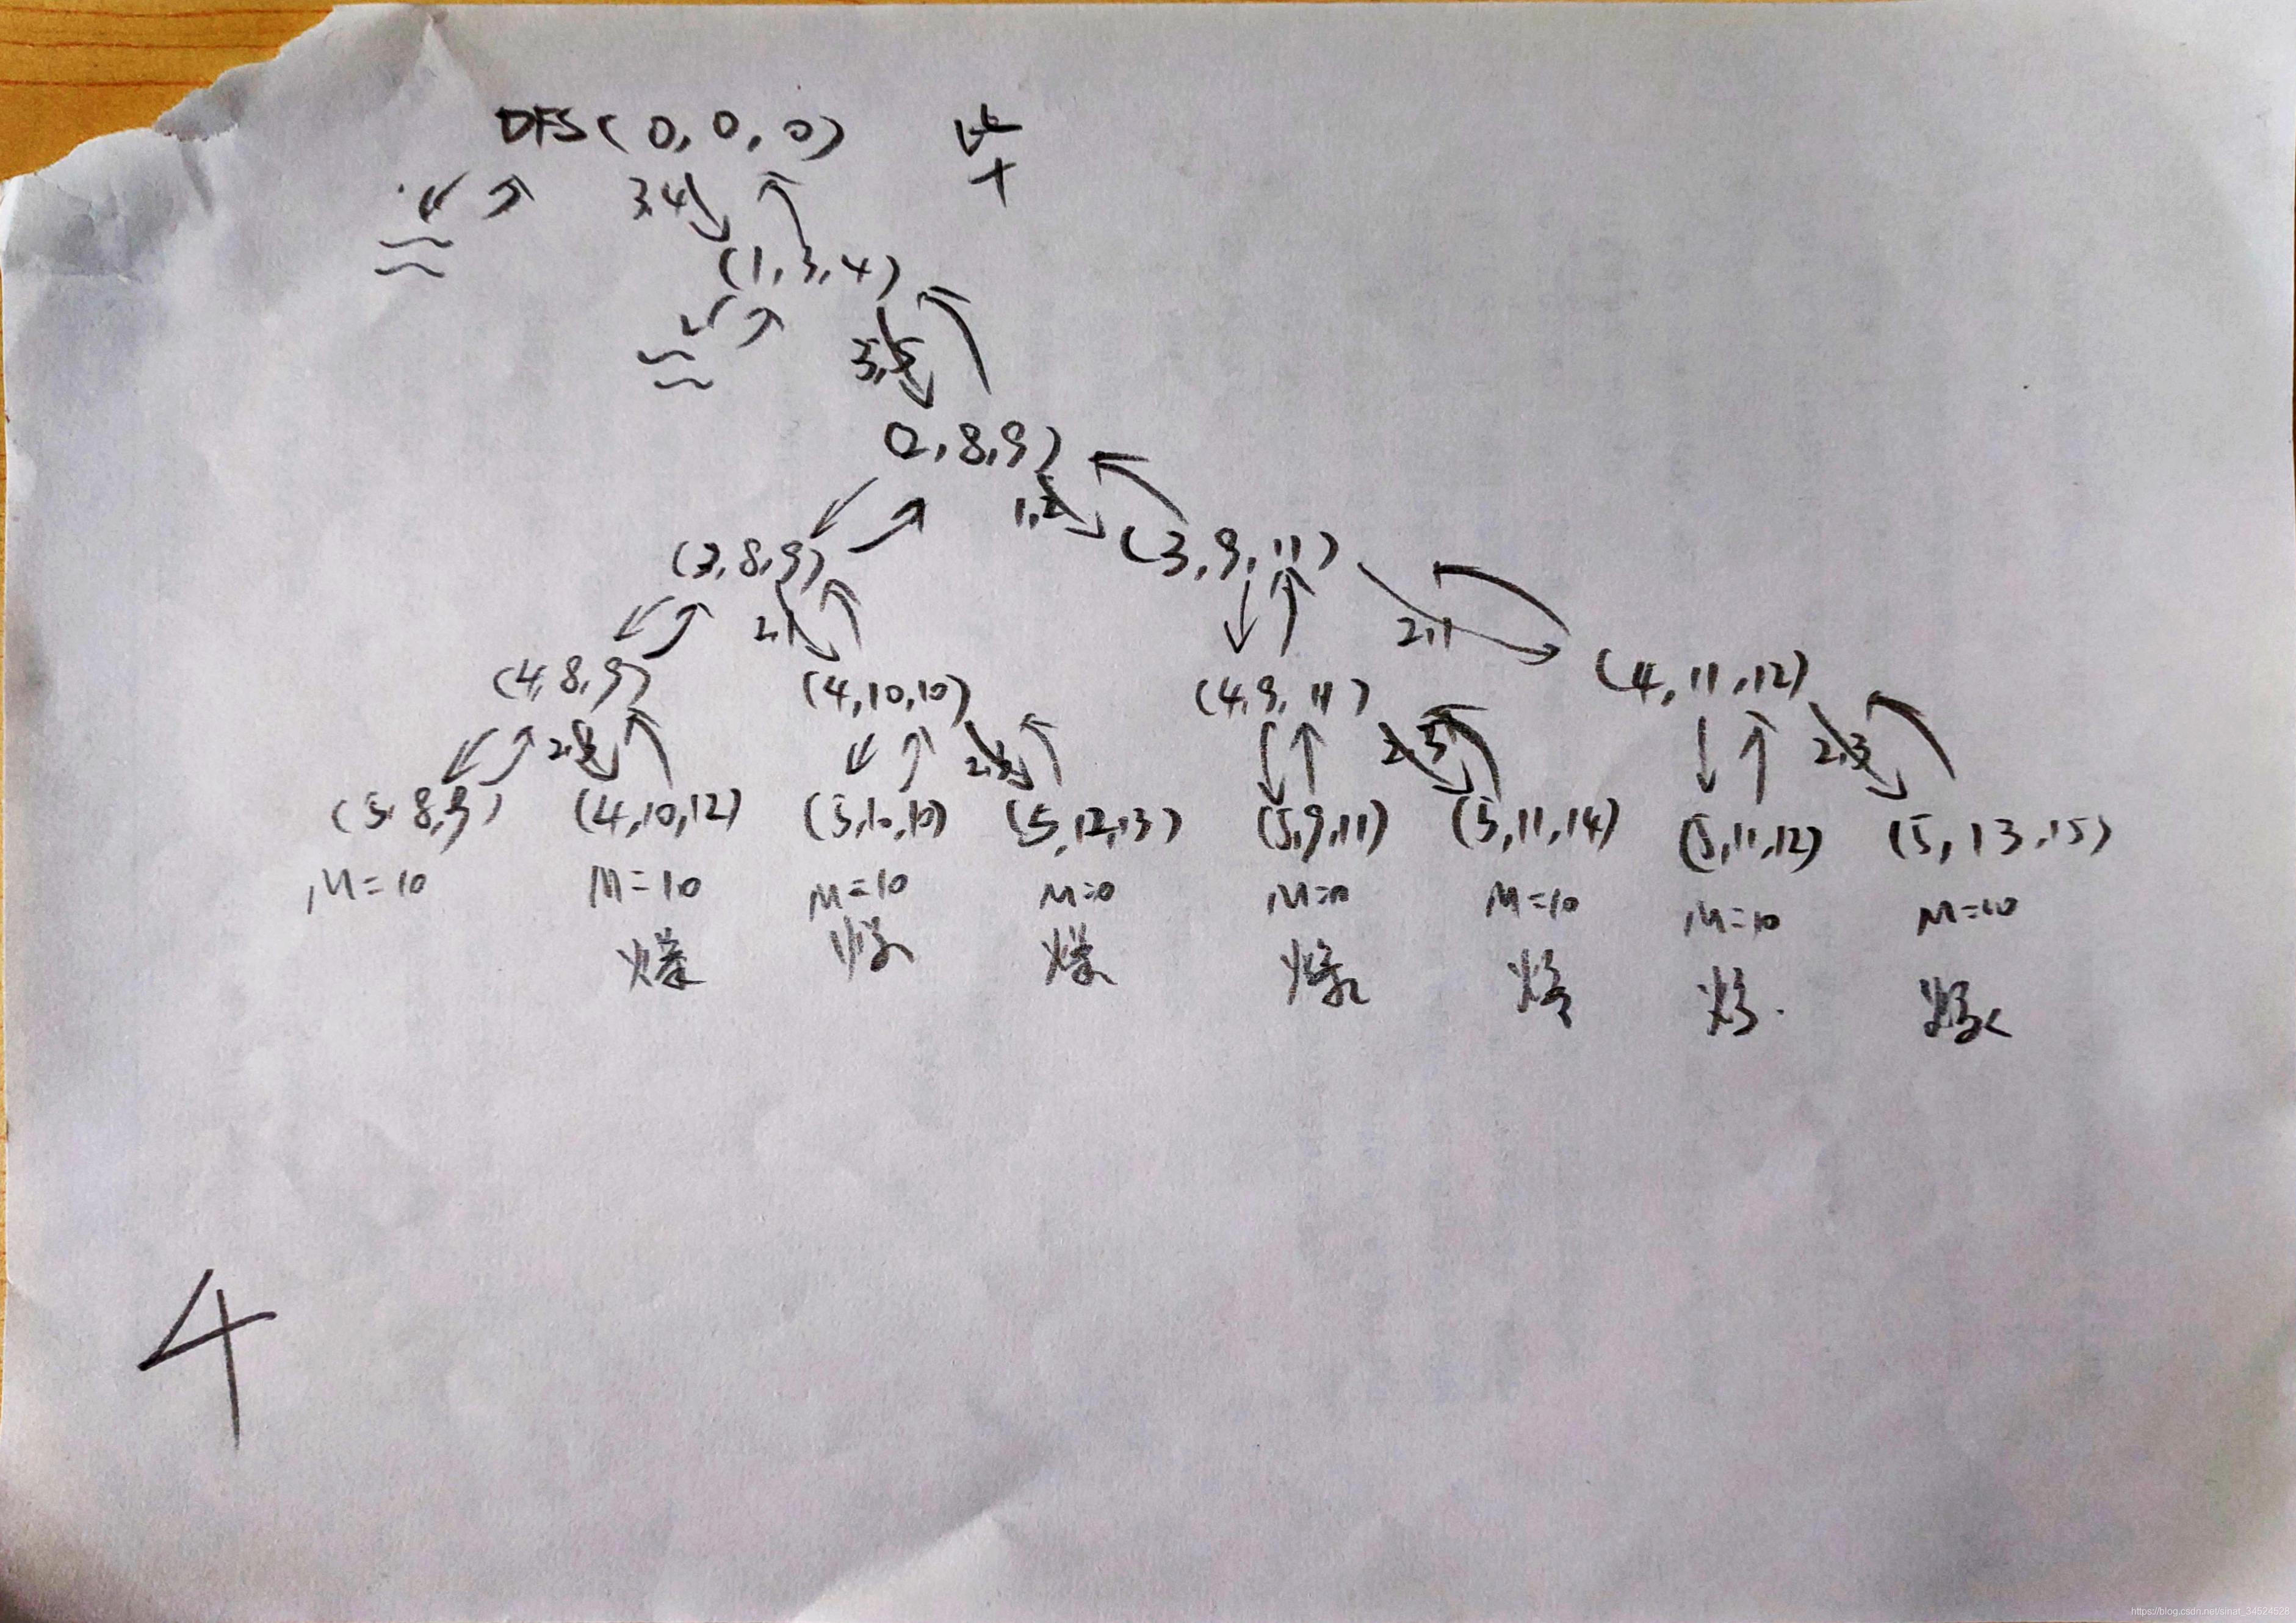 DFS(0,0,0)
3,4
(1,3,4)
3,5
(2,8,9)
1,2
(3,8,9) (3,9,11)
2,1 2,1
(4,8,9) (4,10,10) (4,9,11) (4,11,12)
2,3
(5,8,9) (4,10,12) (5,10,10) (5,12,13) (5,9,11) (5,11,14) (5,11,12) (5,13,15)
M=10 M=10 M=10 M=10 M=10 M=10 M=10 M=10
爆 爆 爆 爆 爆 爆 爆
4